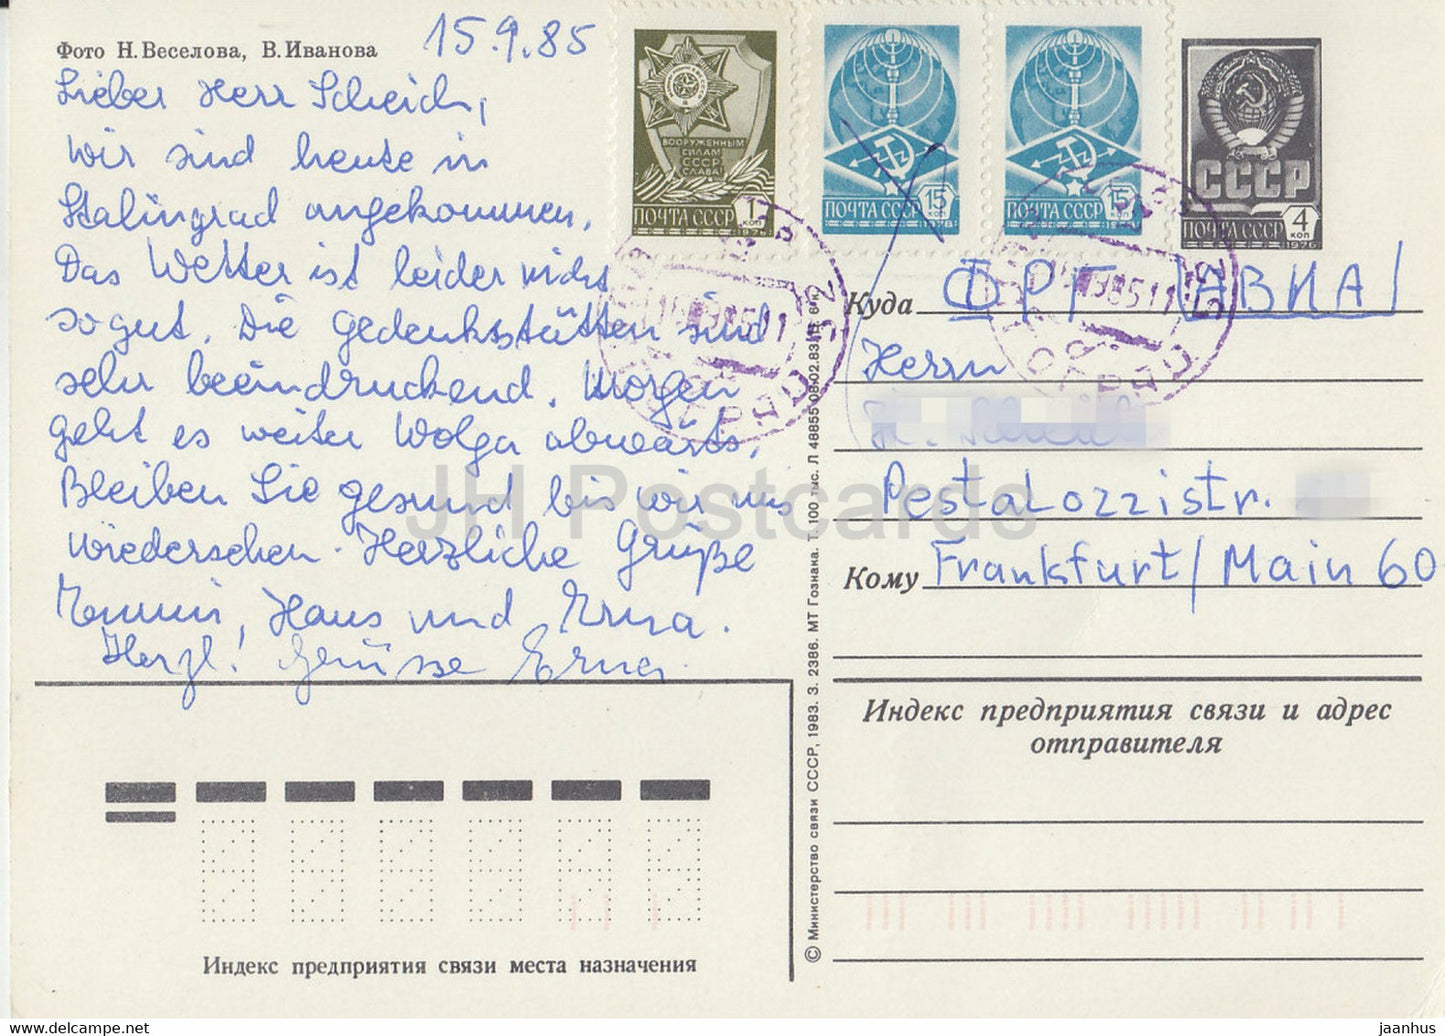 Фото Н. Веселова, В. Иванова
15.9.85
Lieber Herr Scheich,
wir sind heute in
Stalingrad angekommen.
Das Wetter ist leider nicht
so gut. Die Gedenkstätten sind
sehr beeindruckend. Morgen
geht es weiter Wolga abwärts.
Bleiben Sie gesund bis wir uns
wiedersehen. Herzliche Grüße
Hans und Erna.
Herzl! Grüsse Erna.
ВООРУЖЕННЫМ
СИЛАМ
СССР
СЛАВА!
ПОЧТА СССР 1 КОП
1976
ПОЧТА СССР 15 КОП
ПОЧТА СССР 15 КОП
СССР
ПОЧТА СССР 4 КОП
1976
Куда ФРГ АВИА
Herrn
Pestalozzistr.
Кому Frankfurt/Main 60
Индекс предприятия связи и адрес
отправителя
© Министерство связи СССР, 1983. З. 2386. МТ Гознака. Т. 100 тыс. Л 48855 08.02.83. Ц. 6 к.
Индекс предприятия связи места назначения
JH Postcards
www.delcampe.net
jaanhus